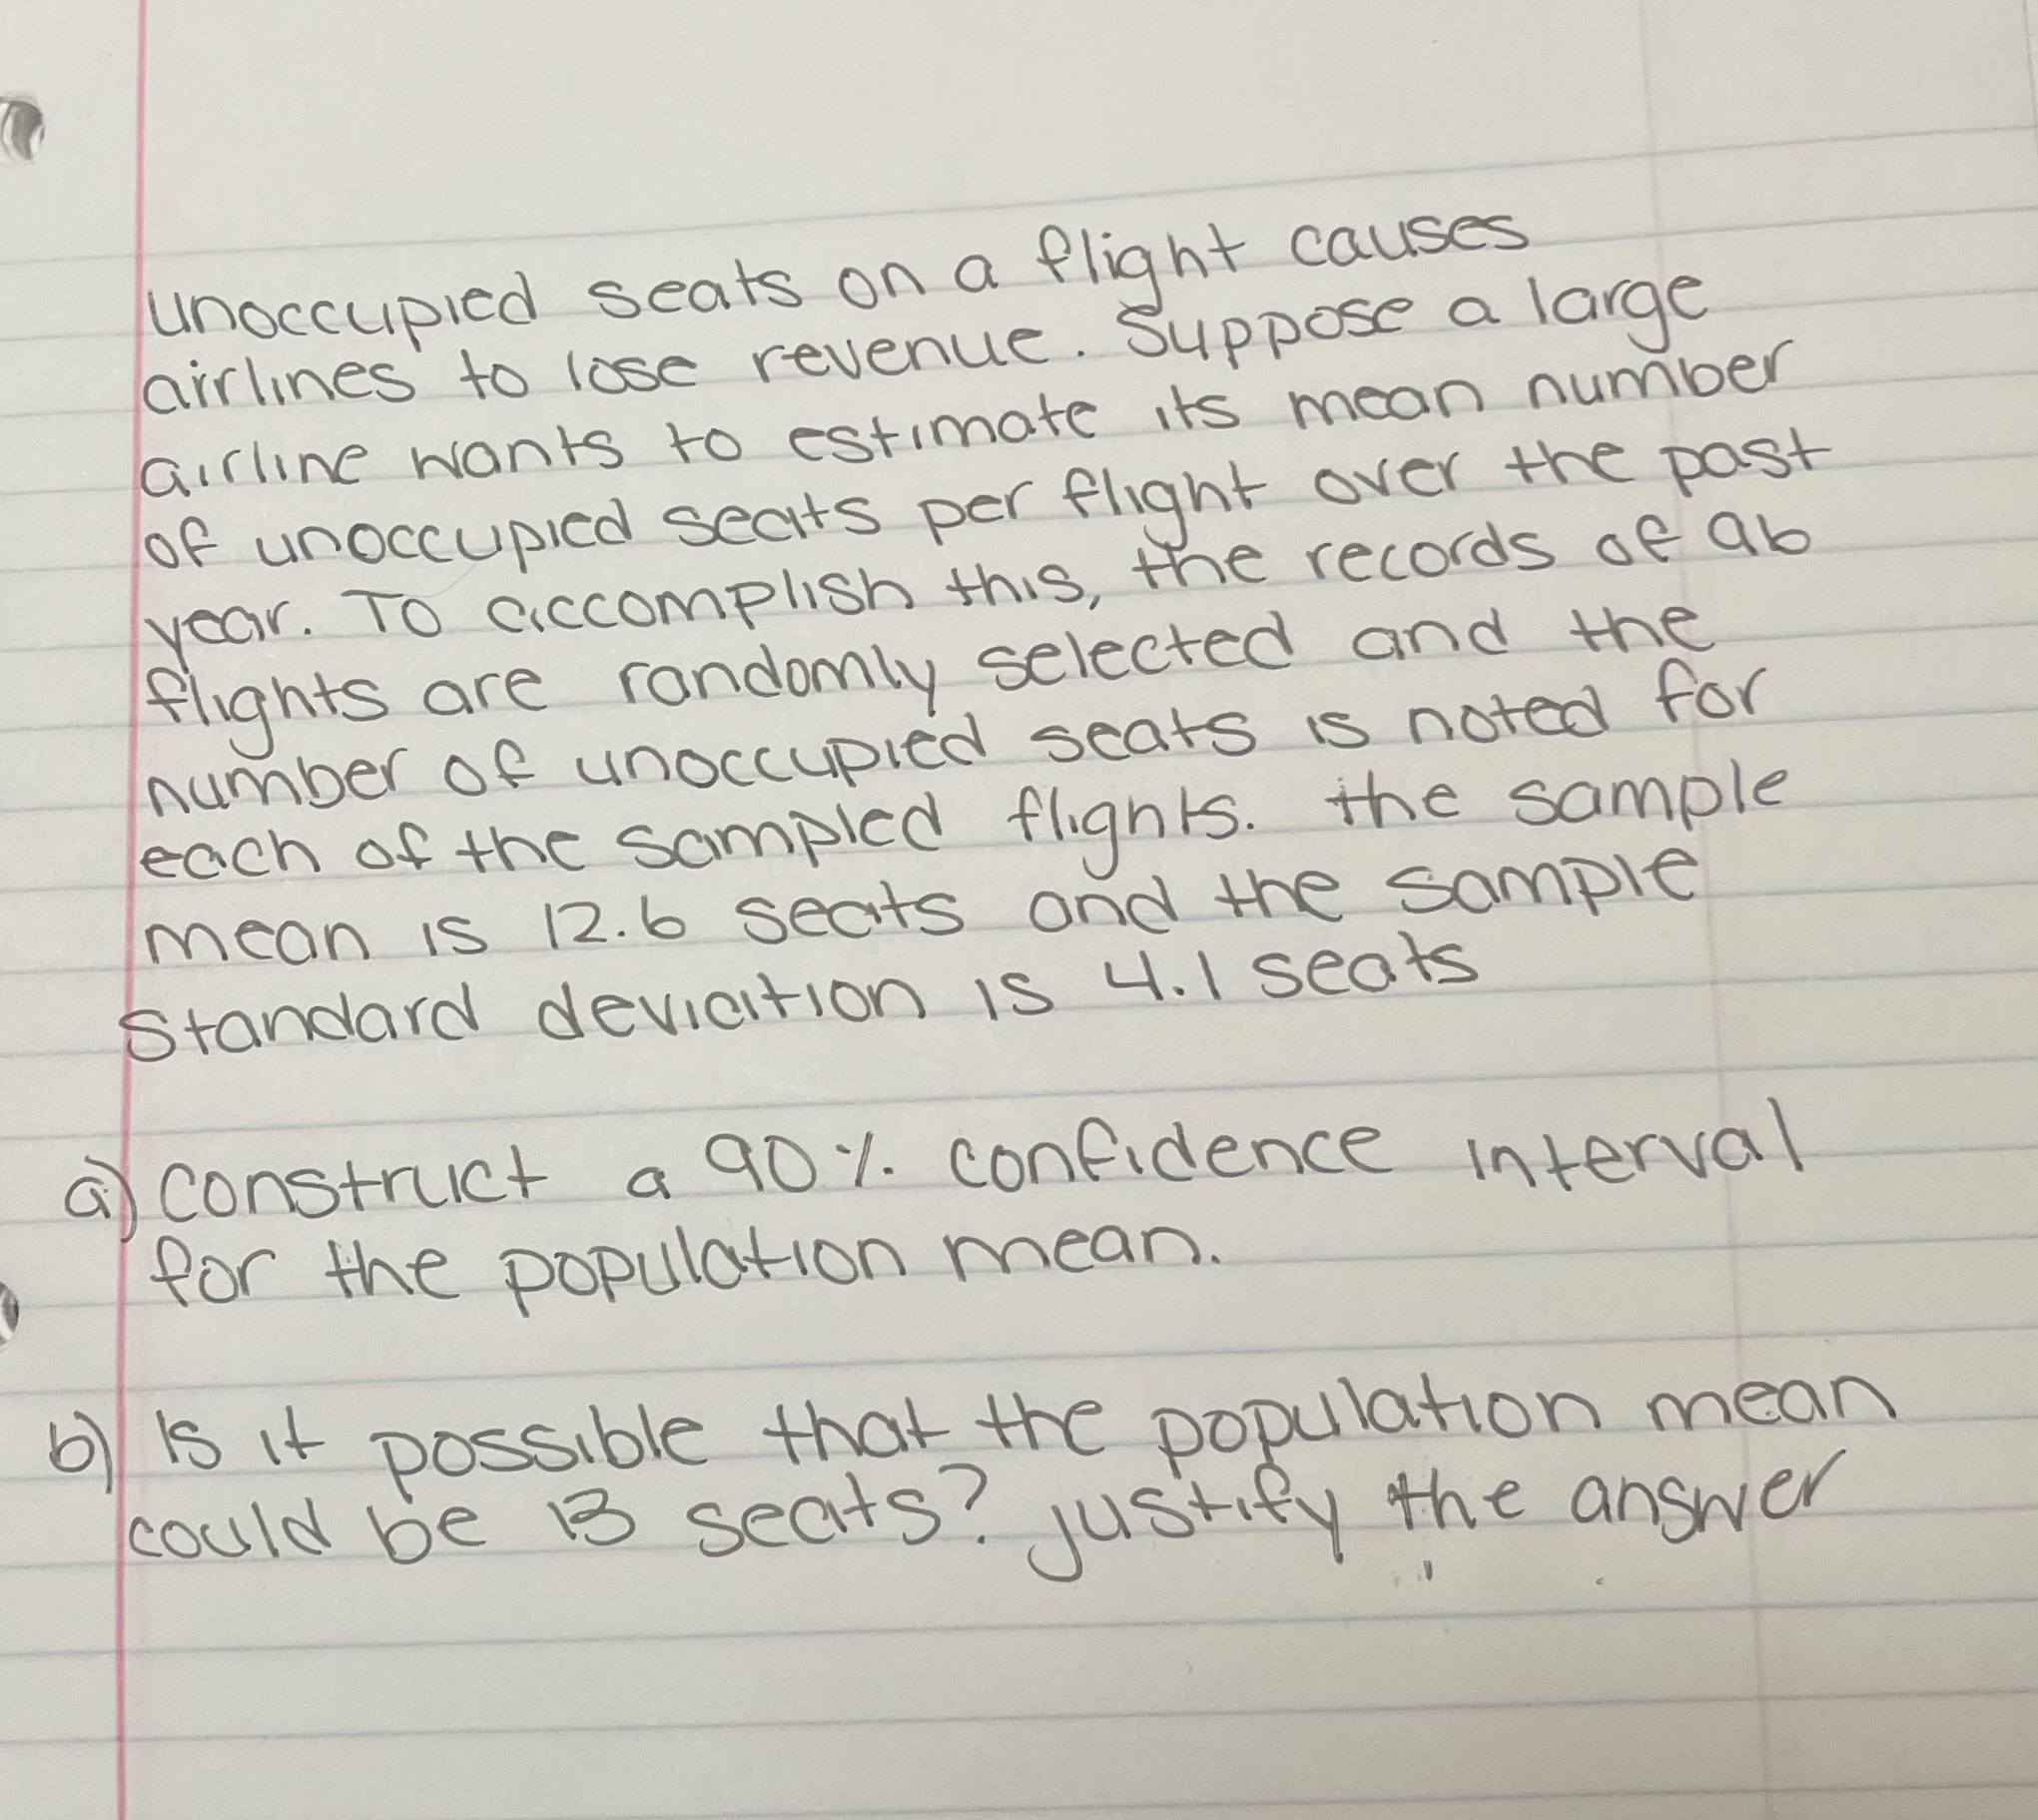 unoccupied seats on a flight causes
airlines to lose revenue. Suppose a large
airline wants to estimate its mean number
of unoccupied seats per flight over the past
year. To accomplish this, the records of 96
flights are randomly selected and the
number of unoccupied seats is noted for
each of the sampled flights. the sample
mean is 12.6 seats and the sample
standard deviation is 4.1 seats
a) construct a 90% confidence interval
for the population mean.
b) Is it possible that the population mean
could be 13 seats? justify the answer